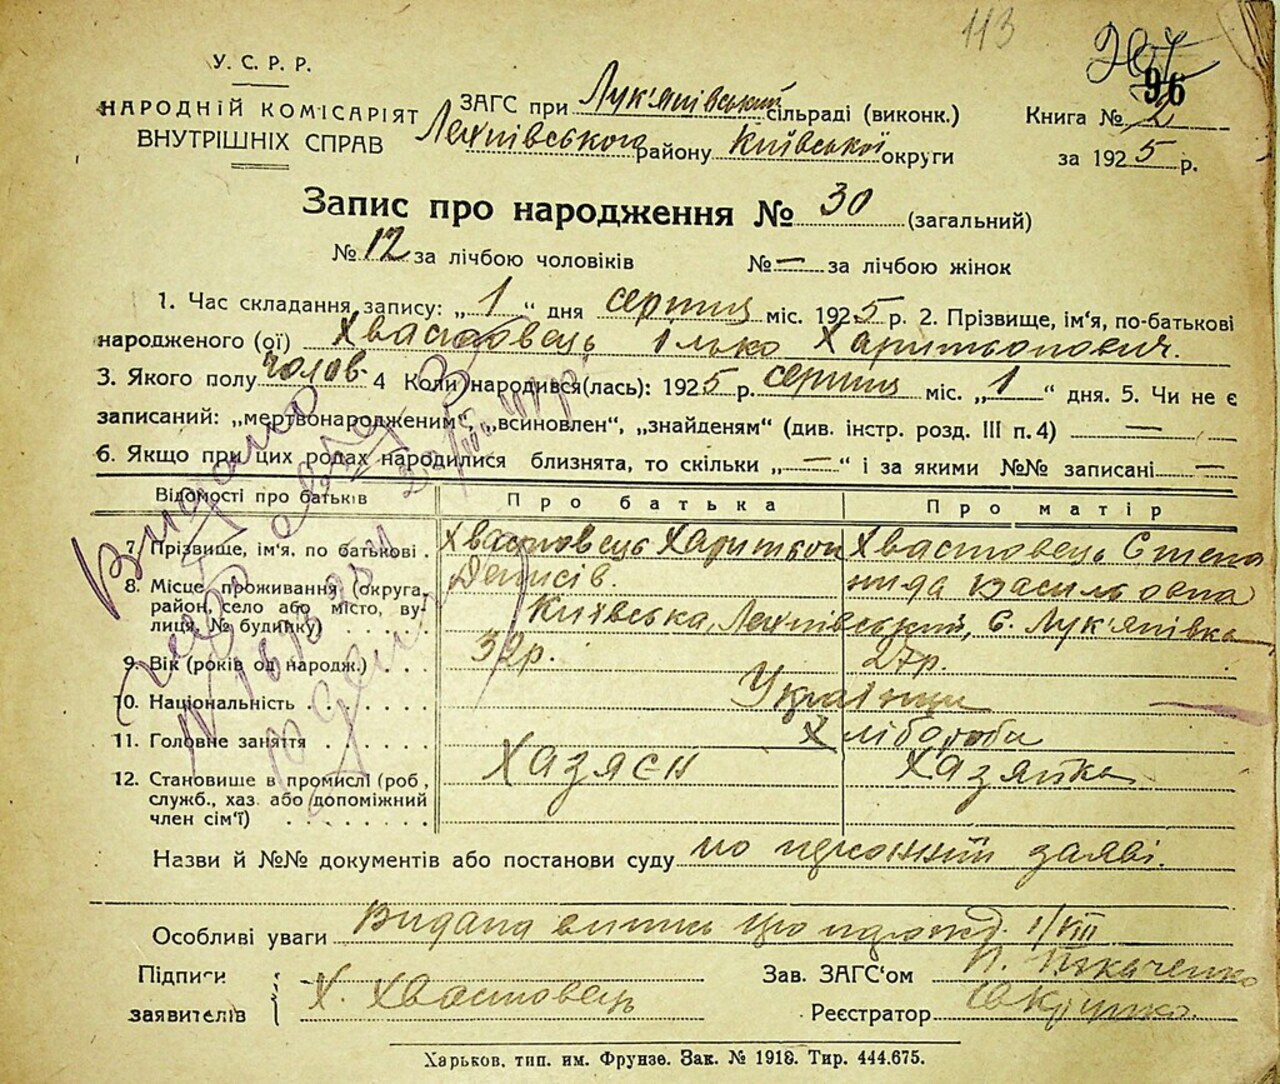 113
96
У. С. Р. Р.
НАРОДНІЙ КОМІСАРІЯТ
ВНУТРІШНІХ СПРАВ
ЗАГС при Лук'янівський сільраді (виконк.)
Лехнівського району Київської округи
Книга № 2
за 1925 р.
Запис про народження № 30 (загальний)
№ 12 за лічбою чоловіків № — за лічбою жінок
1. Час складання запису: „1“ дня серпня міс. 1925 р. 2. Прізвище, ім‘я, по-батькові
народженого (ої) Хвастовець Ілько Харитьонович.
3. Якого полу чолов. 4 Коли народився(лась): 1925 р. серпня міс. „1“ дня. 5. Чи не є
записаний: „мертвонародженим“, „всиновлен“, „знайденям“ (див. інстр. розд. III п. 4) —
6. Якщо при цих родах народилися близнята, то скільки „—“ і за якими №№ записані —
Відомості про батьків Про батька Про матір
7. Прізвище, ім‘я. по батькові. Хвастовець Харитьон Хвастовець Степа
Денисів. нида Васильовна
8. Місце проживання (округа,
район, село або місто, ву-
лиця, № будинку) Київська, Лехнівський, с. Лук'янівка
9. Вік (років од народж.) 32р. 27р.
10. Національність Українци
11. Головне заняття Хлібороби
12. Становище в промислі (роб,
служб., хаз. або допоміжний
член сім‘ї) Хазяєн Хазяйка
Назви й №№ документів або постанови суду по заяві.
Особливі уваги Видана випись про 1/VIII
Підписи
заявителів Х. Хвастовець
Зав. ЗАГС‘ом П. Ткаченко
Реєстратор
Харьков, тип. им. Фрунзе. Зак. № 1918. Тир. 444.675.